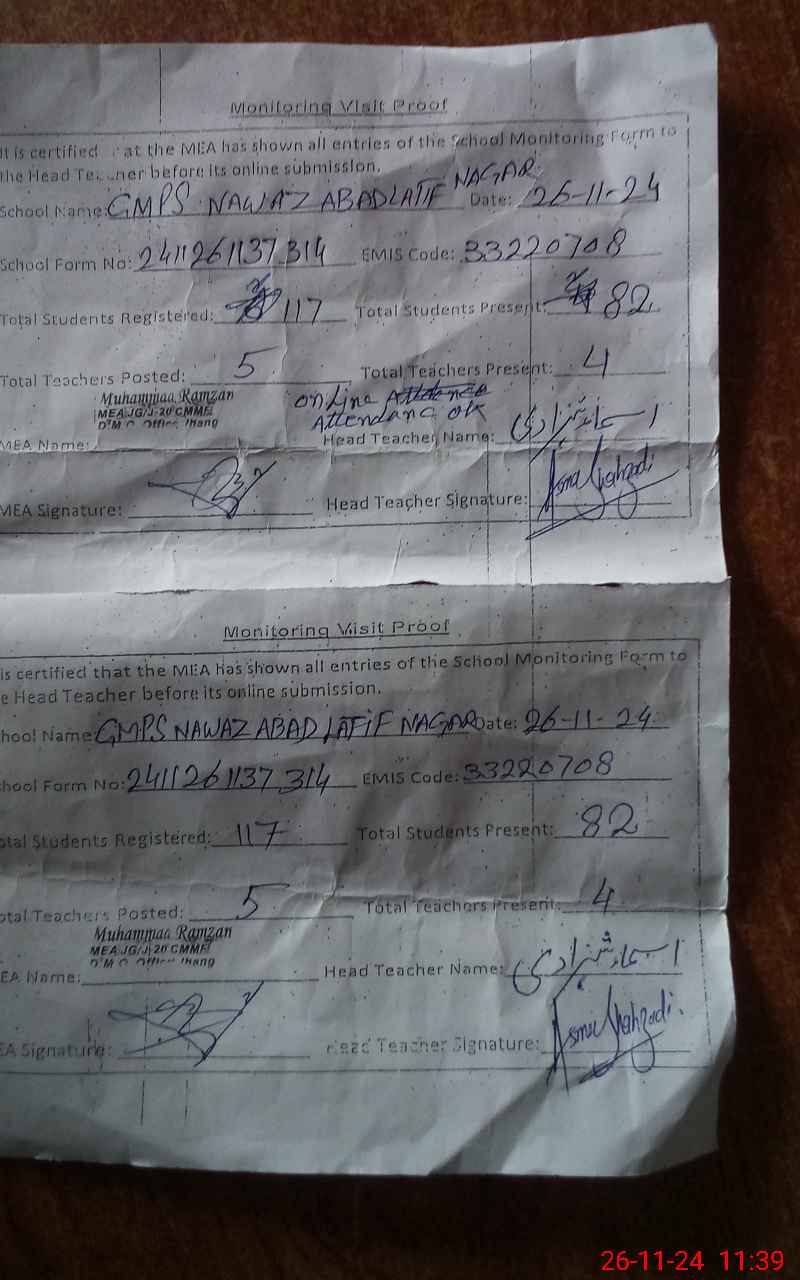 Monitoring Visit Proof
It is certified at the MEA has shown all entries of the School Monitoring Form to
the Head Teacher before its online submission.
School Name: GMPS NAWAZ ABAD LATIF NAGAR Date: 26-11-24
School Form No: 2411261137314 EMIS Code: 33220708
Total Students Registered: 117 Total Students Present: 82
Total Teachers Posted: 5 Total Teachers Present: 4
Muhammad Ramzan
MEA JG/J-20 CMMF
D M O Office Jhang
OnLine
Attendanc ok
MEA Name: Head Teacher Name: اسماء شہزادی
MEA Signature: Head Teacher Signature: Asma Shahzadi
Monitoring Visit Proof
is certified that the MEA has shown all entries of the School Monitoring Form to
e Head Teacher before its online submission.
hool Name: GMPS NAWAZ ABAD LATIF NAGAR Date: 26-11-24
hool Form No: 2411261137314 EMIS Code: 33220708
otal Students Registered: 117 Total Students Present: 82
otal Teachers Posted: 5 Total Teachers Present: 4
Muhammad Ramzan
MEA JG/J-20 CMMF
D M O Office Jhang
EA Name: Head Teacher Name: اسماء شہزادی
EA Signature: Head Teacher Signature: Asma Shahzadi.
26-11-24 11:39